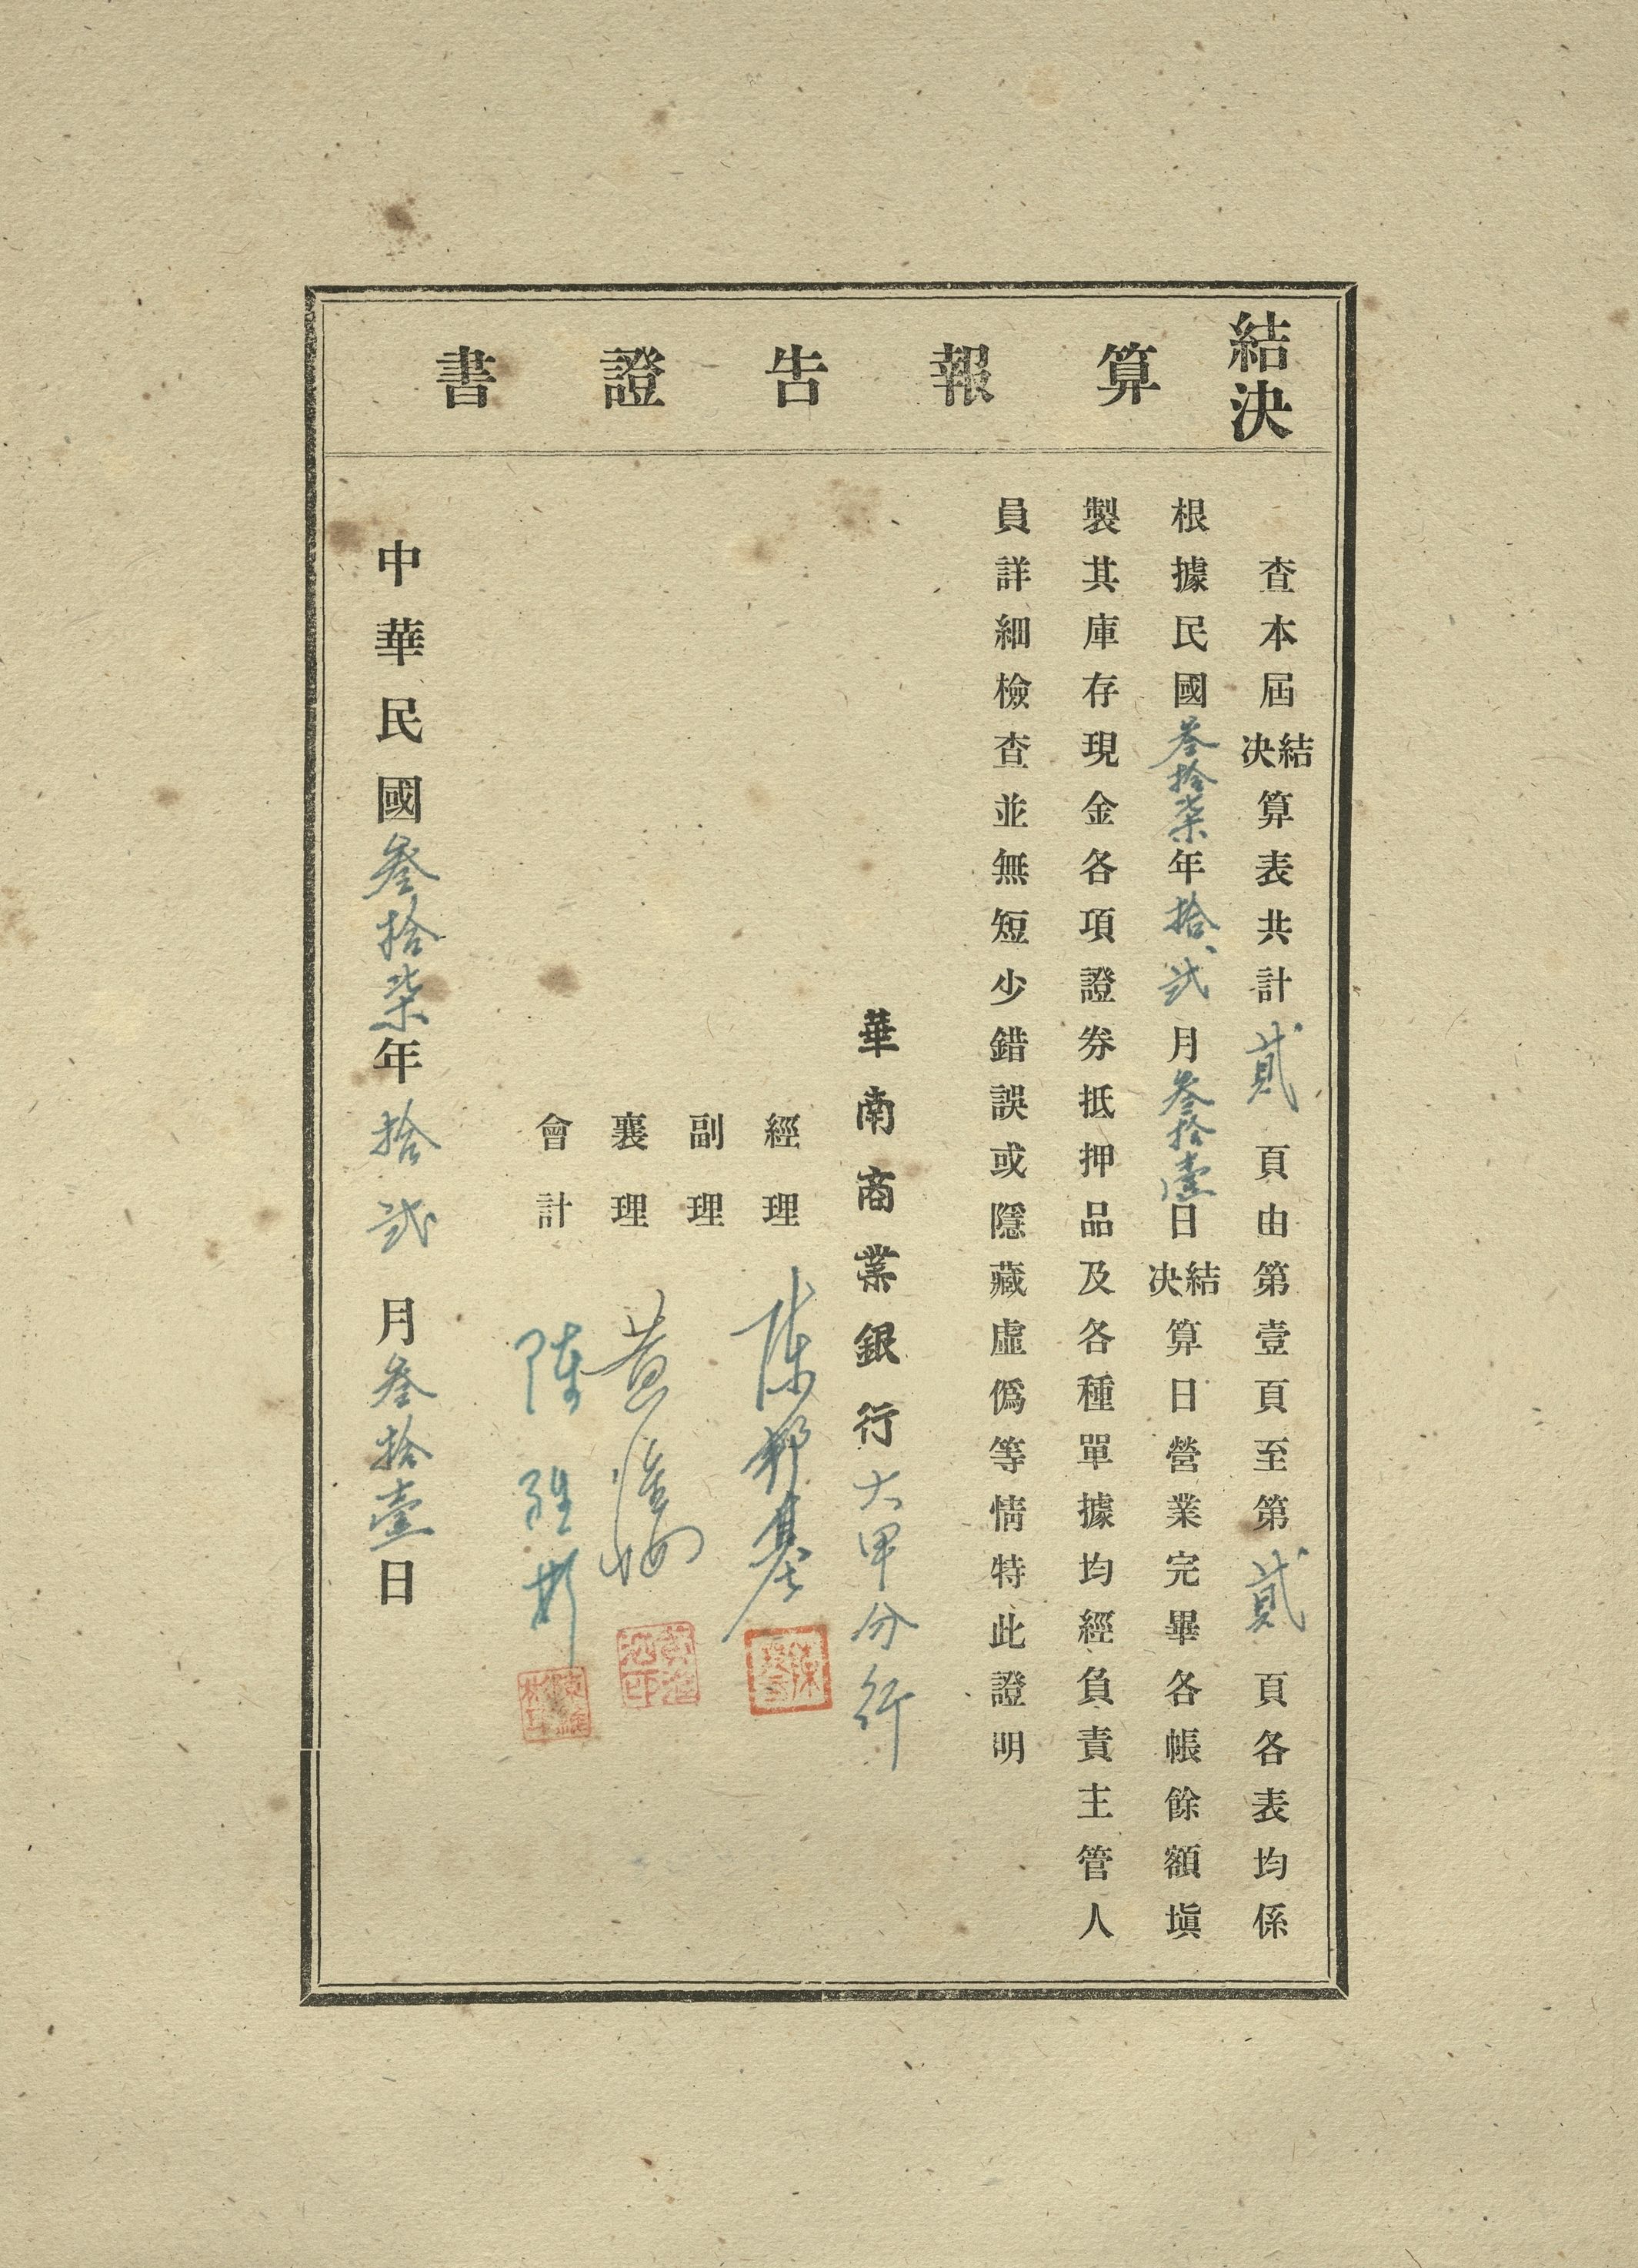 結決算報告證書
查本屆結決算表共計貳頁由第壹頁至第貳頁各表均係
根據民國叁拾柒年拾弍月叁拾壹日結決算日營業完畢各帳餘額塡
製其庫存現金各項證券抵押品及各種單據均經負責主管人
員詳細檢查並無短少錯誤或隱藏虛僞等情特此證明
華南商業銀行大甲分行
經理 陳邦基
副理
襄理 黃
會計 陳
中華民國叁拾柒年拾弍月叁拾壹日